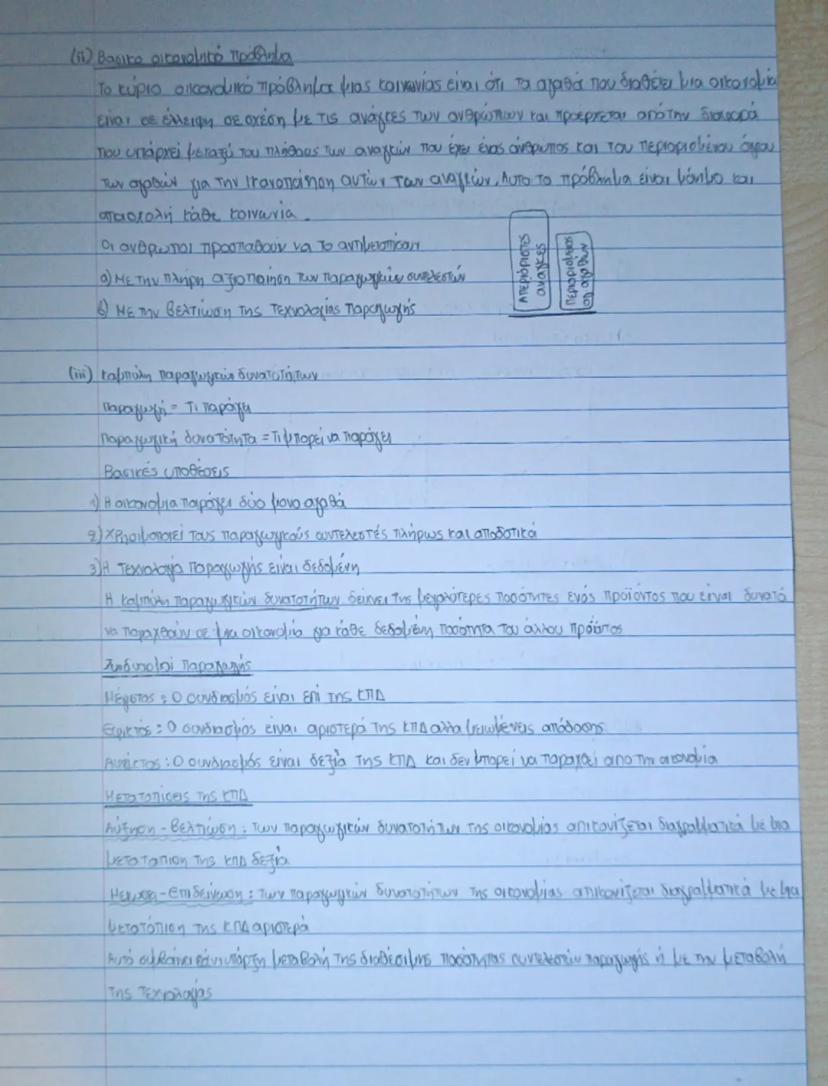 (ii) Βασικο οικονομικό πρόβλημα
Το κύριο οικονομικό πρόβλημα μιας κοινωνίας είναι ότι τα αγαθά που διαθέτει μια οικονομία
είναι σε έλλειψη σε σχέση με τις ανάγκες των ανθρώπων και προέρχεται από την διαφορά
που υπάρχει μεταξύ του πλήθους των αναγκών που έχει ένας άνθρωπος και του περιορισμένου όγκου
των αγαθών για την ικανοποίηση αυτών των αναγκών. Αυτο το πρόβλημα είναι μόνιμο και
απασχολή κάθε κοινωνία.
Οι ανθρωποι προσπαθούν να το αντιμετοπίσουν
α) Με την πλήρη αξιοποίηση των παραγωγικών συντελεστών
β) Με την βελτίωση της τεχνολογίας παραγωγής
Απεριόριστες
ανάγκες
περιορισμένος
αγαθών
(iii) Καμπύλη παραγωγικών δυνατοτήτων
Παραγωγή = Τι παράγει
Παραγωγική δυνατότητα = Τι μπορεί να παράγει
Βασικές υποθέσεις
1) Η οικονομια παράγει δύο μονο αγαθά
2) Χρησιμοποιεί τους παραγωγικούς συντελεστές πλήρως και αποδοτικά
3) Η τεχνολογία παραγωγής είναι δεδομένη
Η καμπύλη παραγωγικών δυνατοτήτων δείχνει της μεγαλύτερες ποσότητες ενός προϊόντος που είναι δυνατό
να παραχθούν σε μια οικονομία για κάθε δεδομένη ποσότητα του άλλου προϊόντος
Συνδυασμοί παραγωγής
Μέγιστος: Ο συνδιασμός είναι επί της ΚΠΔ
Εφικτός: Ο συνδιασμός είναι αριστερά της ΚΠΔ αλλα μειωμένης απόδοσης
Ανέφικτος: Ο συνδιασμός είναι δεξία της ΚΠΔ και δεν μπορεί να παραχθεί απο την οικονομία
Μετατοπίσεις της ΚΠΔ
Αύξηση - Βελτίωση: των παραγωγικών δυνατοτήτων της οικονομίας απικονίζεται διαγραμματικά με μια
μετατόπιση της ΚΠΔ δεξία
Μείωση - Επιδείνωση: των παραγωγικών δυνατοτήτων της οικονομίας απικονίζεται διαγραμματικά με μια
μετατόπιση της ΚΠΔ αριστερά
Αυτό συμβαίνει εάν υπάρξη μεταβολή της διαθέσιμης ποσότητας συντελεστών παραγωγής ή με την μεταβολή
της τεχνολογίας